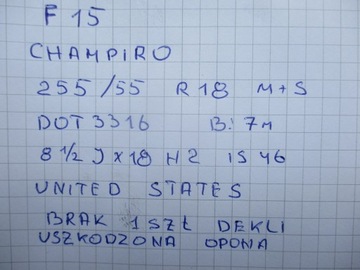 F 15
CHAMPIRO
255/55 R18 M+S
DOT 3316 B: 7m
8 1/2 J x 18 H2 IS 46
UNITED STATES
BRAK 1 SZT DEKLI
USZKODZONA OPONA